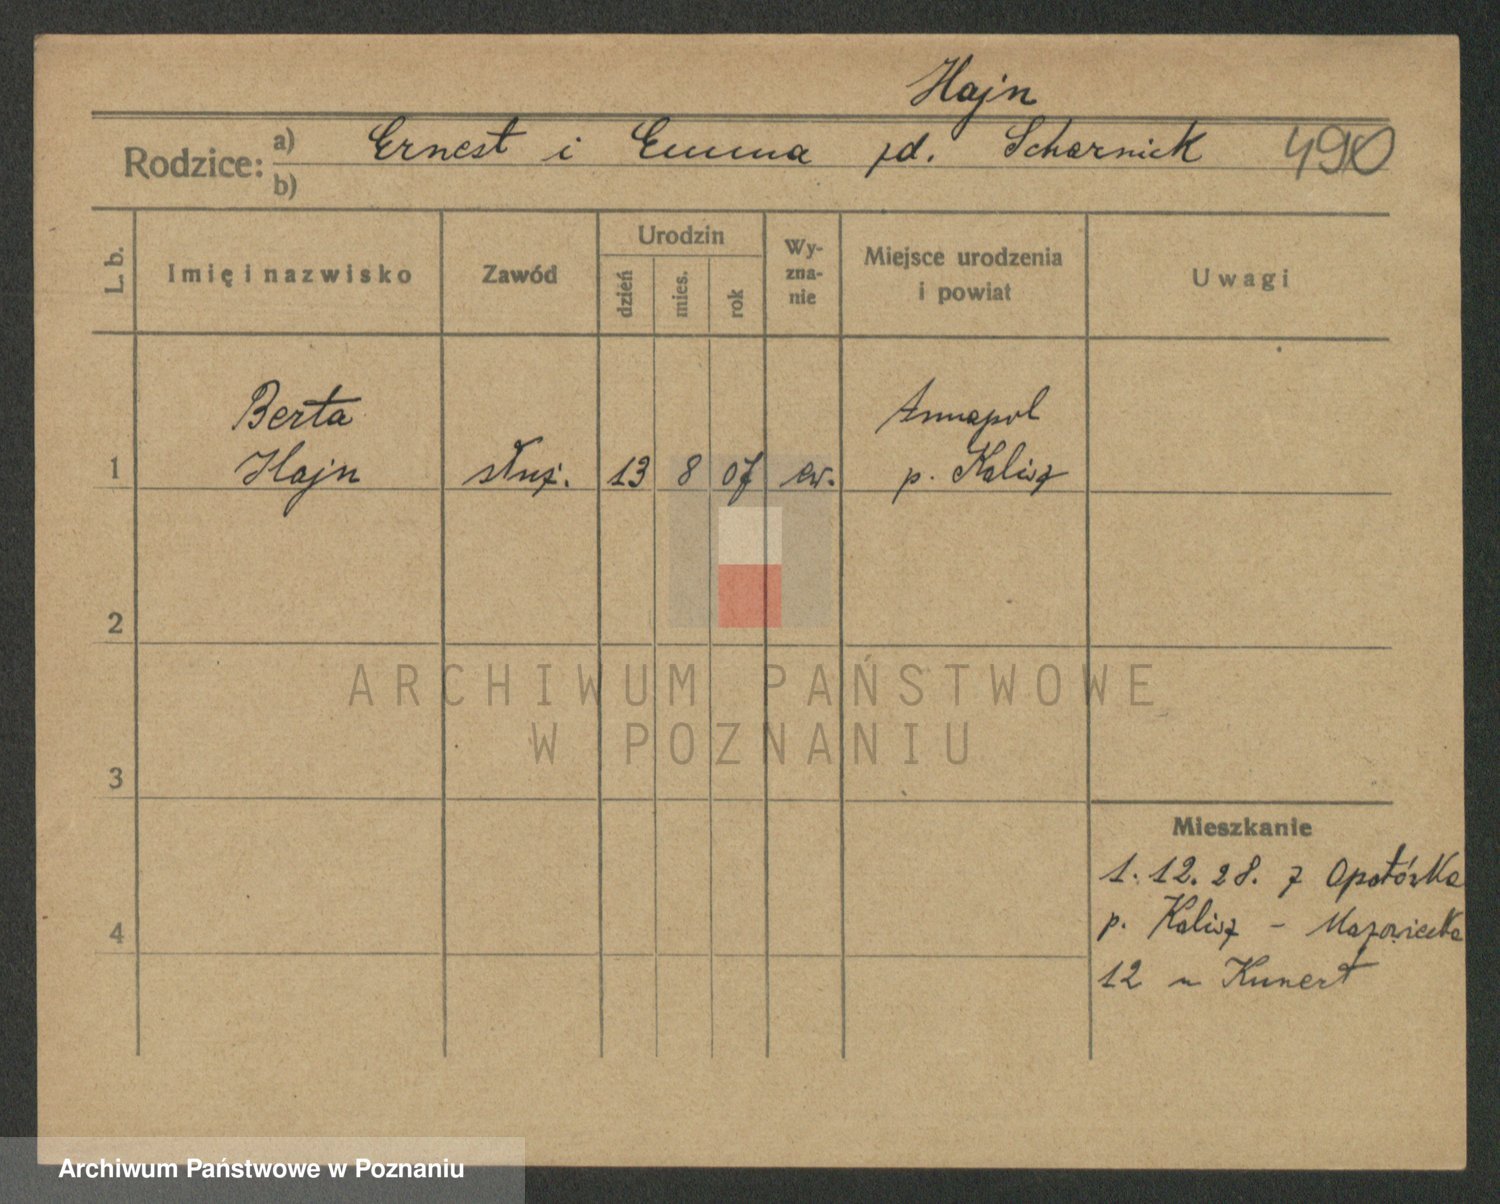 Hajn
Rodzice: a) Ernest i Emma zd. Scharnick 490
b)
L. b.
Imię i nazwisko
Zawód
Urodzin
dzień
mies.
rok
Wy-
zna-
nie
Miejsce urodzenia
i powiat
Uwagi
Berta Annapol
1 Hajn służ. 13 8 07 ew. p. Kalisz
2
ARCHIWUM PAŃSTWOWE
W POZNANIU
3
Mieszkanie
1.12.28. z Opatówka
4 p. Kalisz - Mazowiecka
12 u Kunert
Archiwum Państwowe w Poznaniu